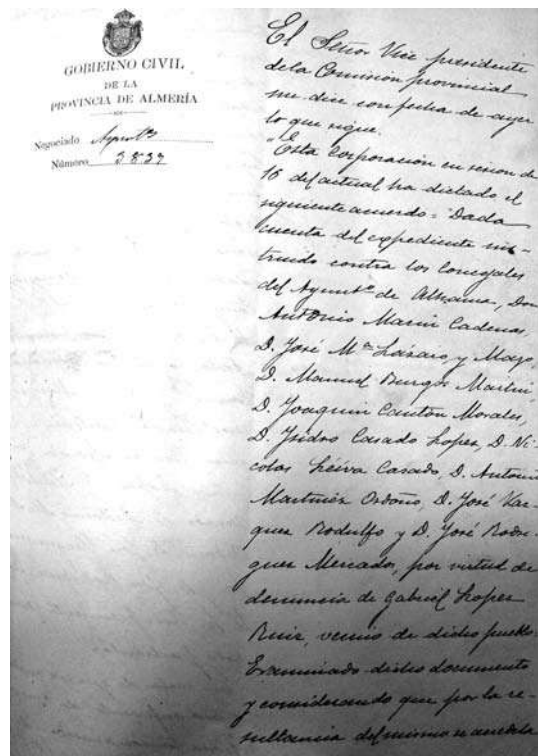 GOBIERNO CIVIL
DE LA
PROVINCIA DE ALMERÍA
Negociado Ayunt.os
Número 3837
El Señor Vice presidente
de la Comisión provincial
me dice con fecha de ayer
lo que sigue.
"Esta Corporación en sesión de
16 del actual ha dictado el
siguiente acuerdo = Dada
cuenta del expediente ins-
truido contra los Concejales
del Ayunt.º de Alhama, Don
Antonio Marin Cadenas,
D. José M.ª Lázaro y Mayo,
D. Manuel Burgos Martin,
D. Joaquin Cantón Morales,
D. Ysidro Casado Lopez, D. Ni-
colas Leiva Casado, D. Antonio
Martinez Ordoño, D. José Vaz-
quez Rodulfo y D. José Rodri-
guez Mercader, por virtud de
denuncia de Gabriel Lopez
Ruiz, vecino de dicho pueblo.
Examinado dicho documento
y considerando que por la re-
sultancia del mismo se acredita